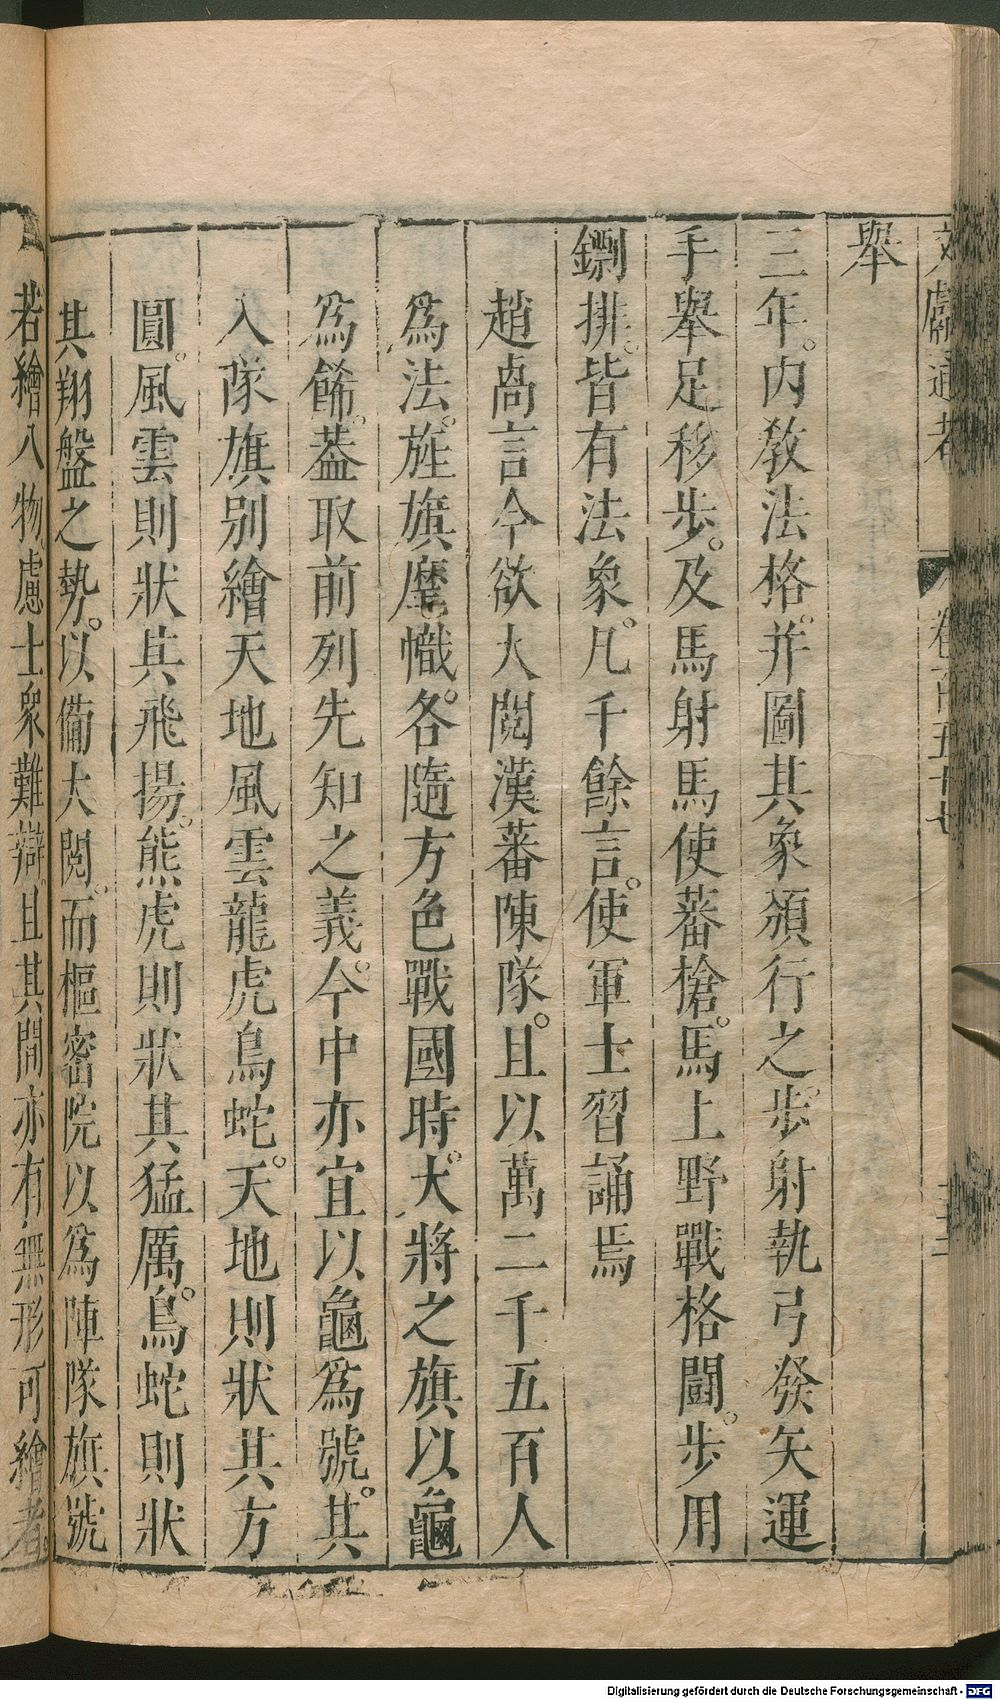 文獻通考 卷一百五十七
舉
三年。內教法格。并圖其象頒行之。步射執弓發矢運
手舉足移步。及馬射馬使蕃槍。馬上野戰格鬪。步用
鏢排。皆有法象。凡千餘言。使軍士習誦焉
趙卨言今欲大閱漢蕃陳隊。且以萬二千五百人
爲法。旌旗麾幟。各隨方色戰國時。大將之旗以龜
爲飾。蓋取前列先知之義。今中亦宜以龜爲號。其
入隊旗別繪天地風雲龍虎鳥蛇。天地則狀其方
圓。風雲則狀其飛揚。熊虎則狀其猛厲。鳥蛇則狀
其翔盤之勢。以備大閱。而樞密院以爲陣隊旗號
若繪八物。慮士衆難辯。且其間亦有無形可繪者。
Digitalisierung gefördert durch die Deutsche Forschungsgemeinschaft - DFG